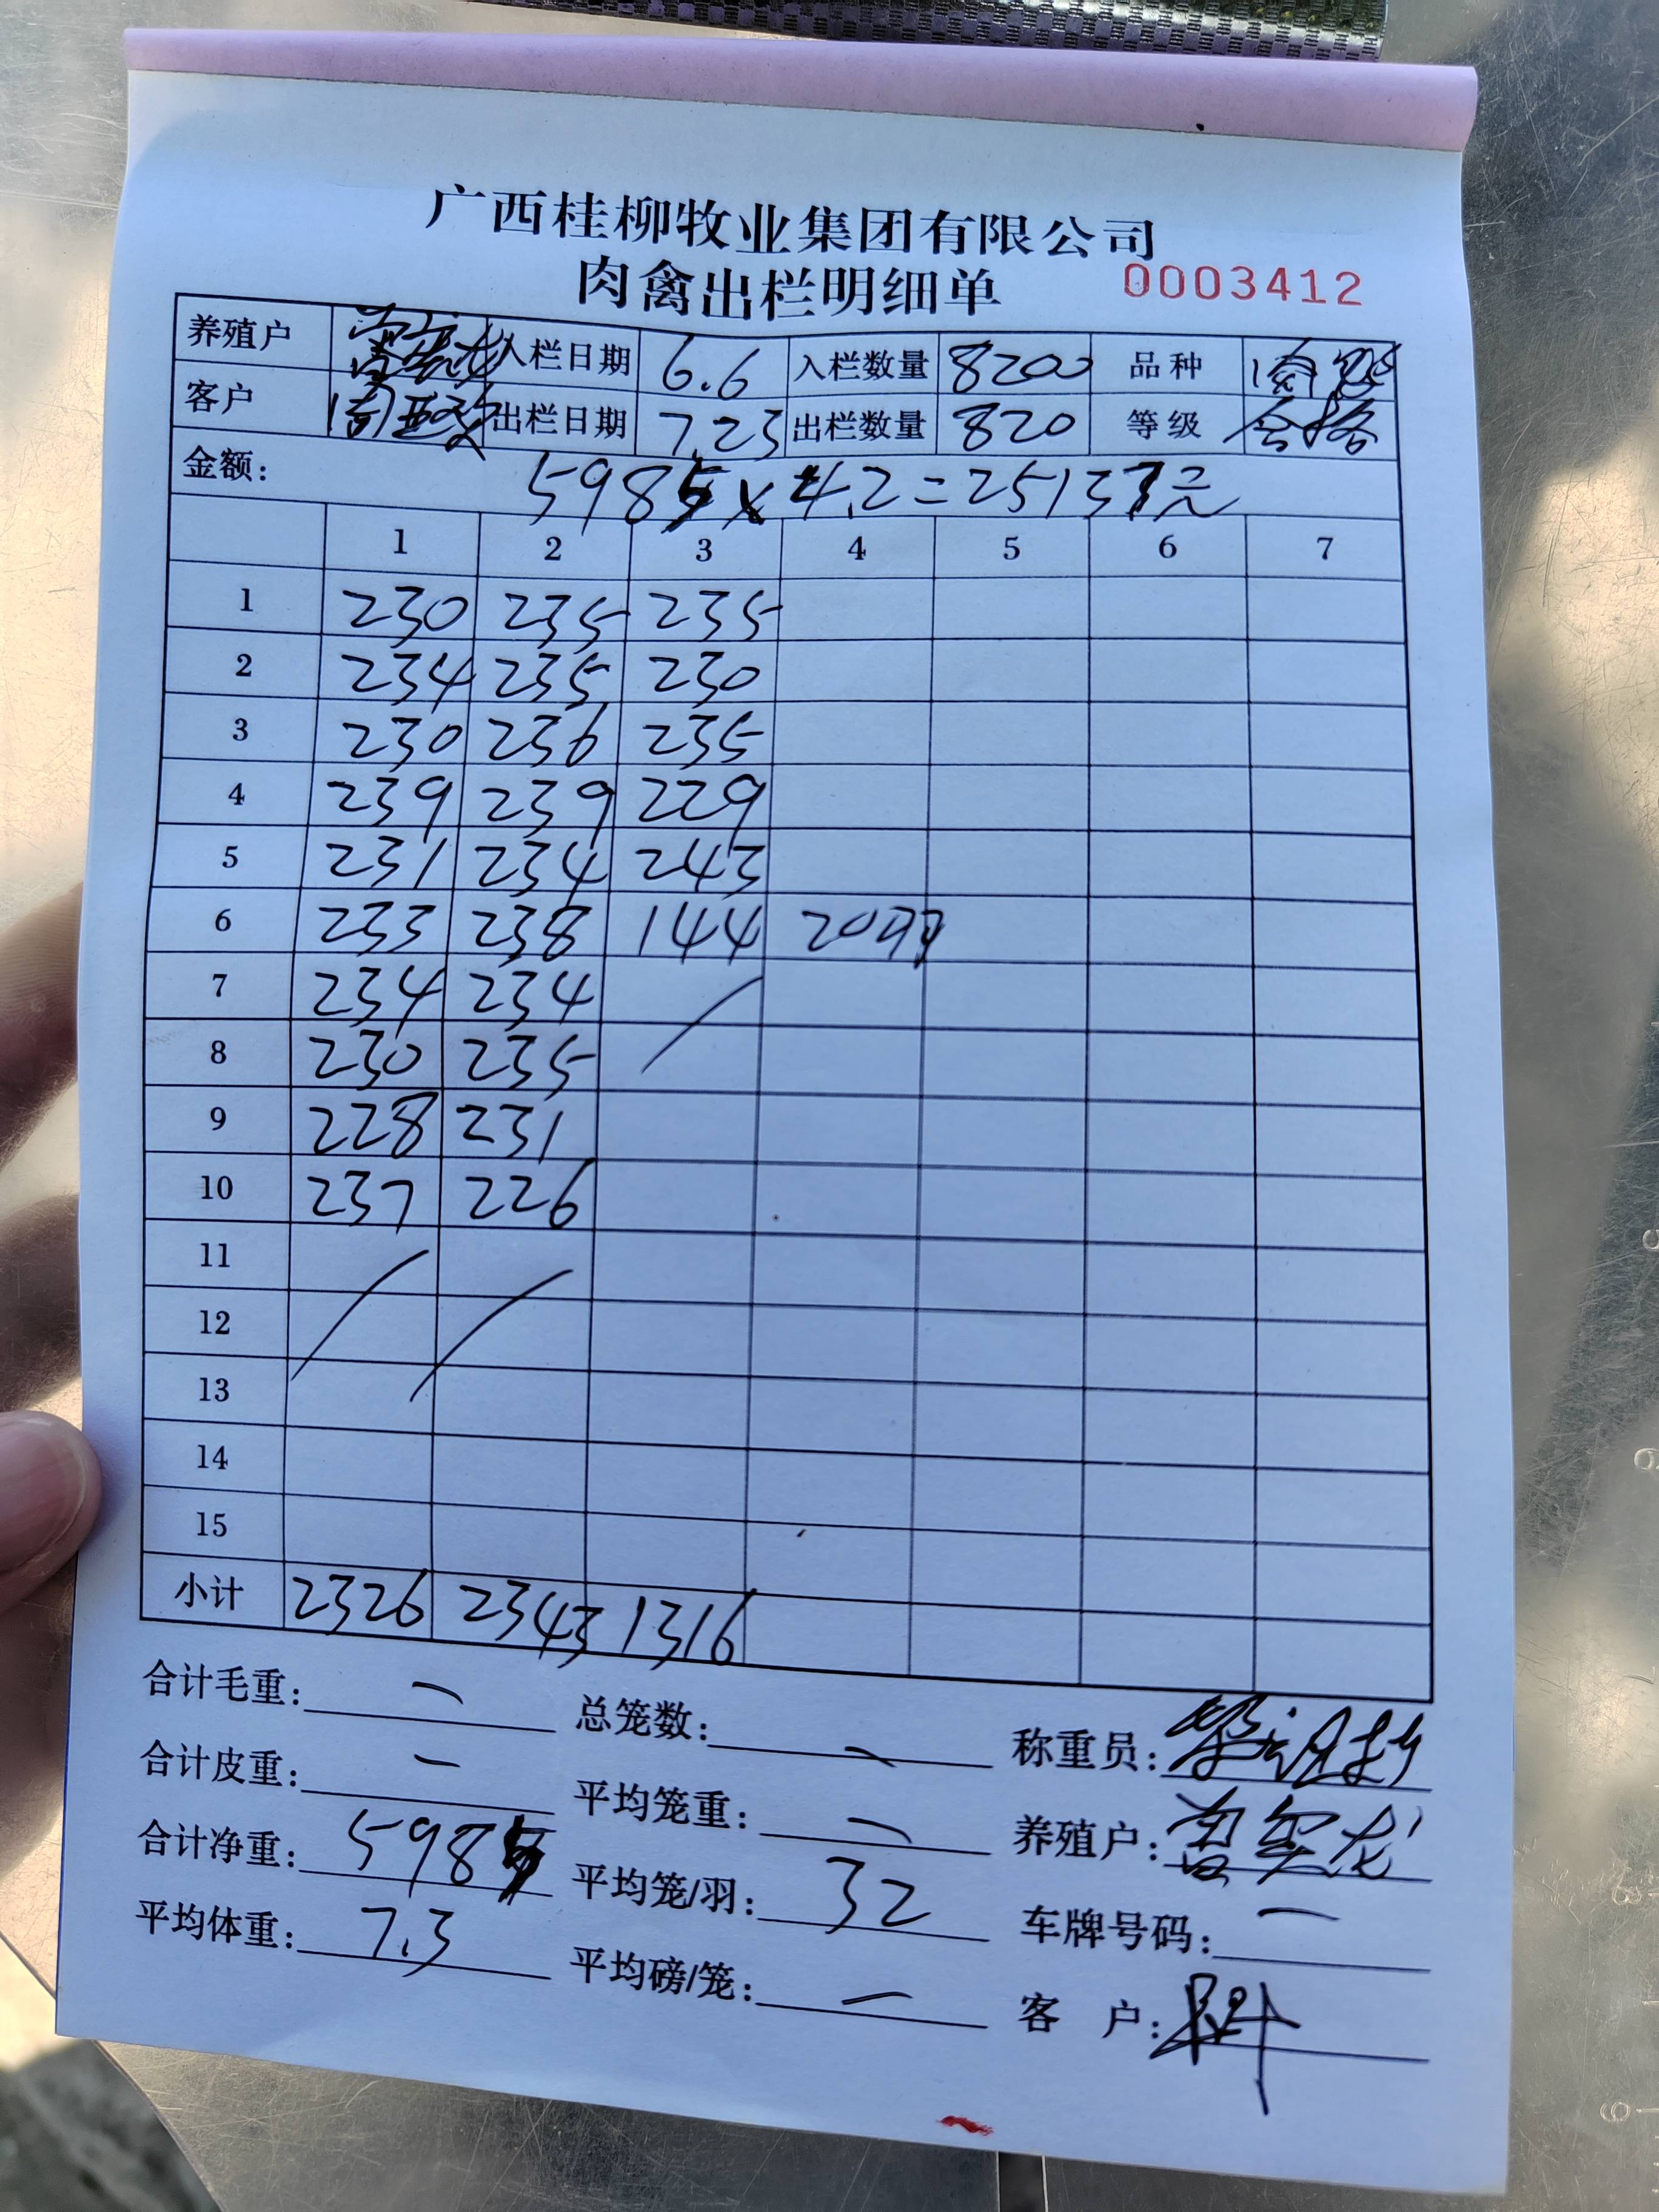 广西桂柳牧业集团有限公司
肉禽出栏明细单 0003412
养殖户 入栏日期 6.6 入栏数量 8200 品种
客户 出栏日期 7.23 出栏数量 820 等级 合格
金额: 5985×4.2=25137元
1 2 3 4 5 6 7
1 230 235 235
2 234 235 230
3 230 236 235
4 239 239 229
5 231 234 243
6 233 238 144
7 234 234
8 230 235
9 228 231
10 237 226
11
12
13
14
15
小计 2326 2343 1316
合计毛重: 一 总笼数: 一 称重员:
合计皮重: 一 平均笼重: 一 养殖户:
合计净重: 5985 平均笼/羽: 32 车牌号码: 一
平均体重: 7.3 平均磅/笼: 一 客 户: